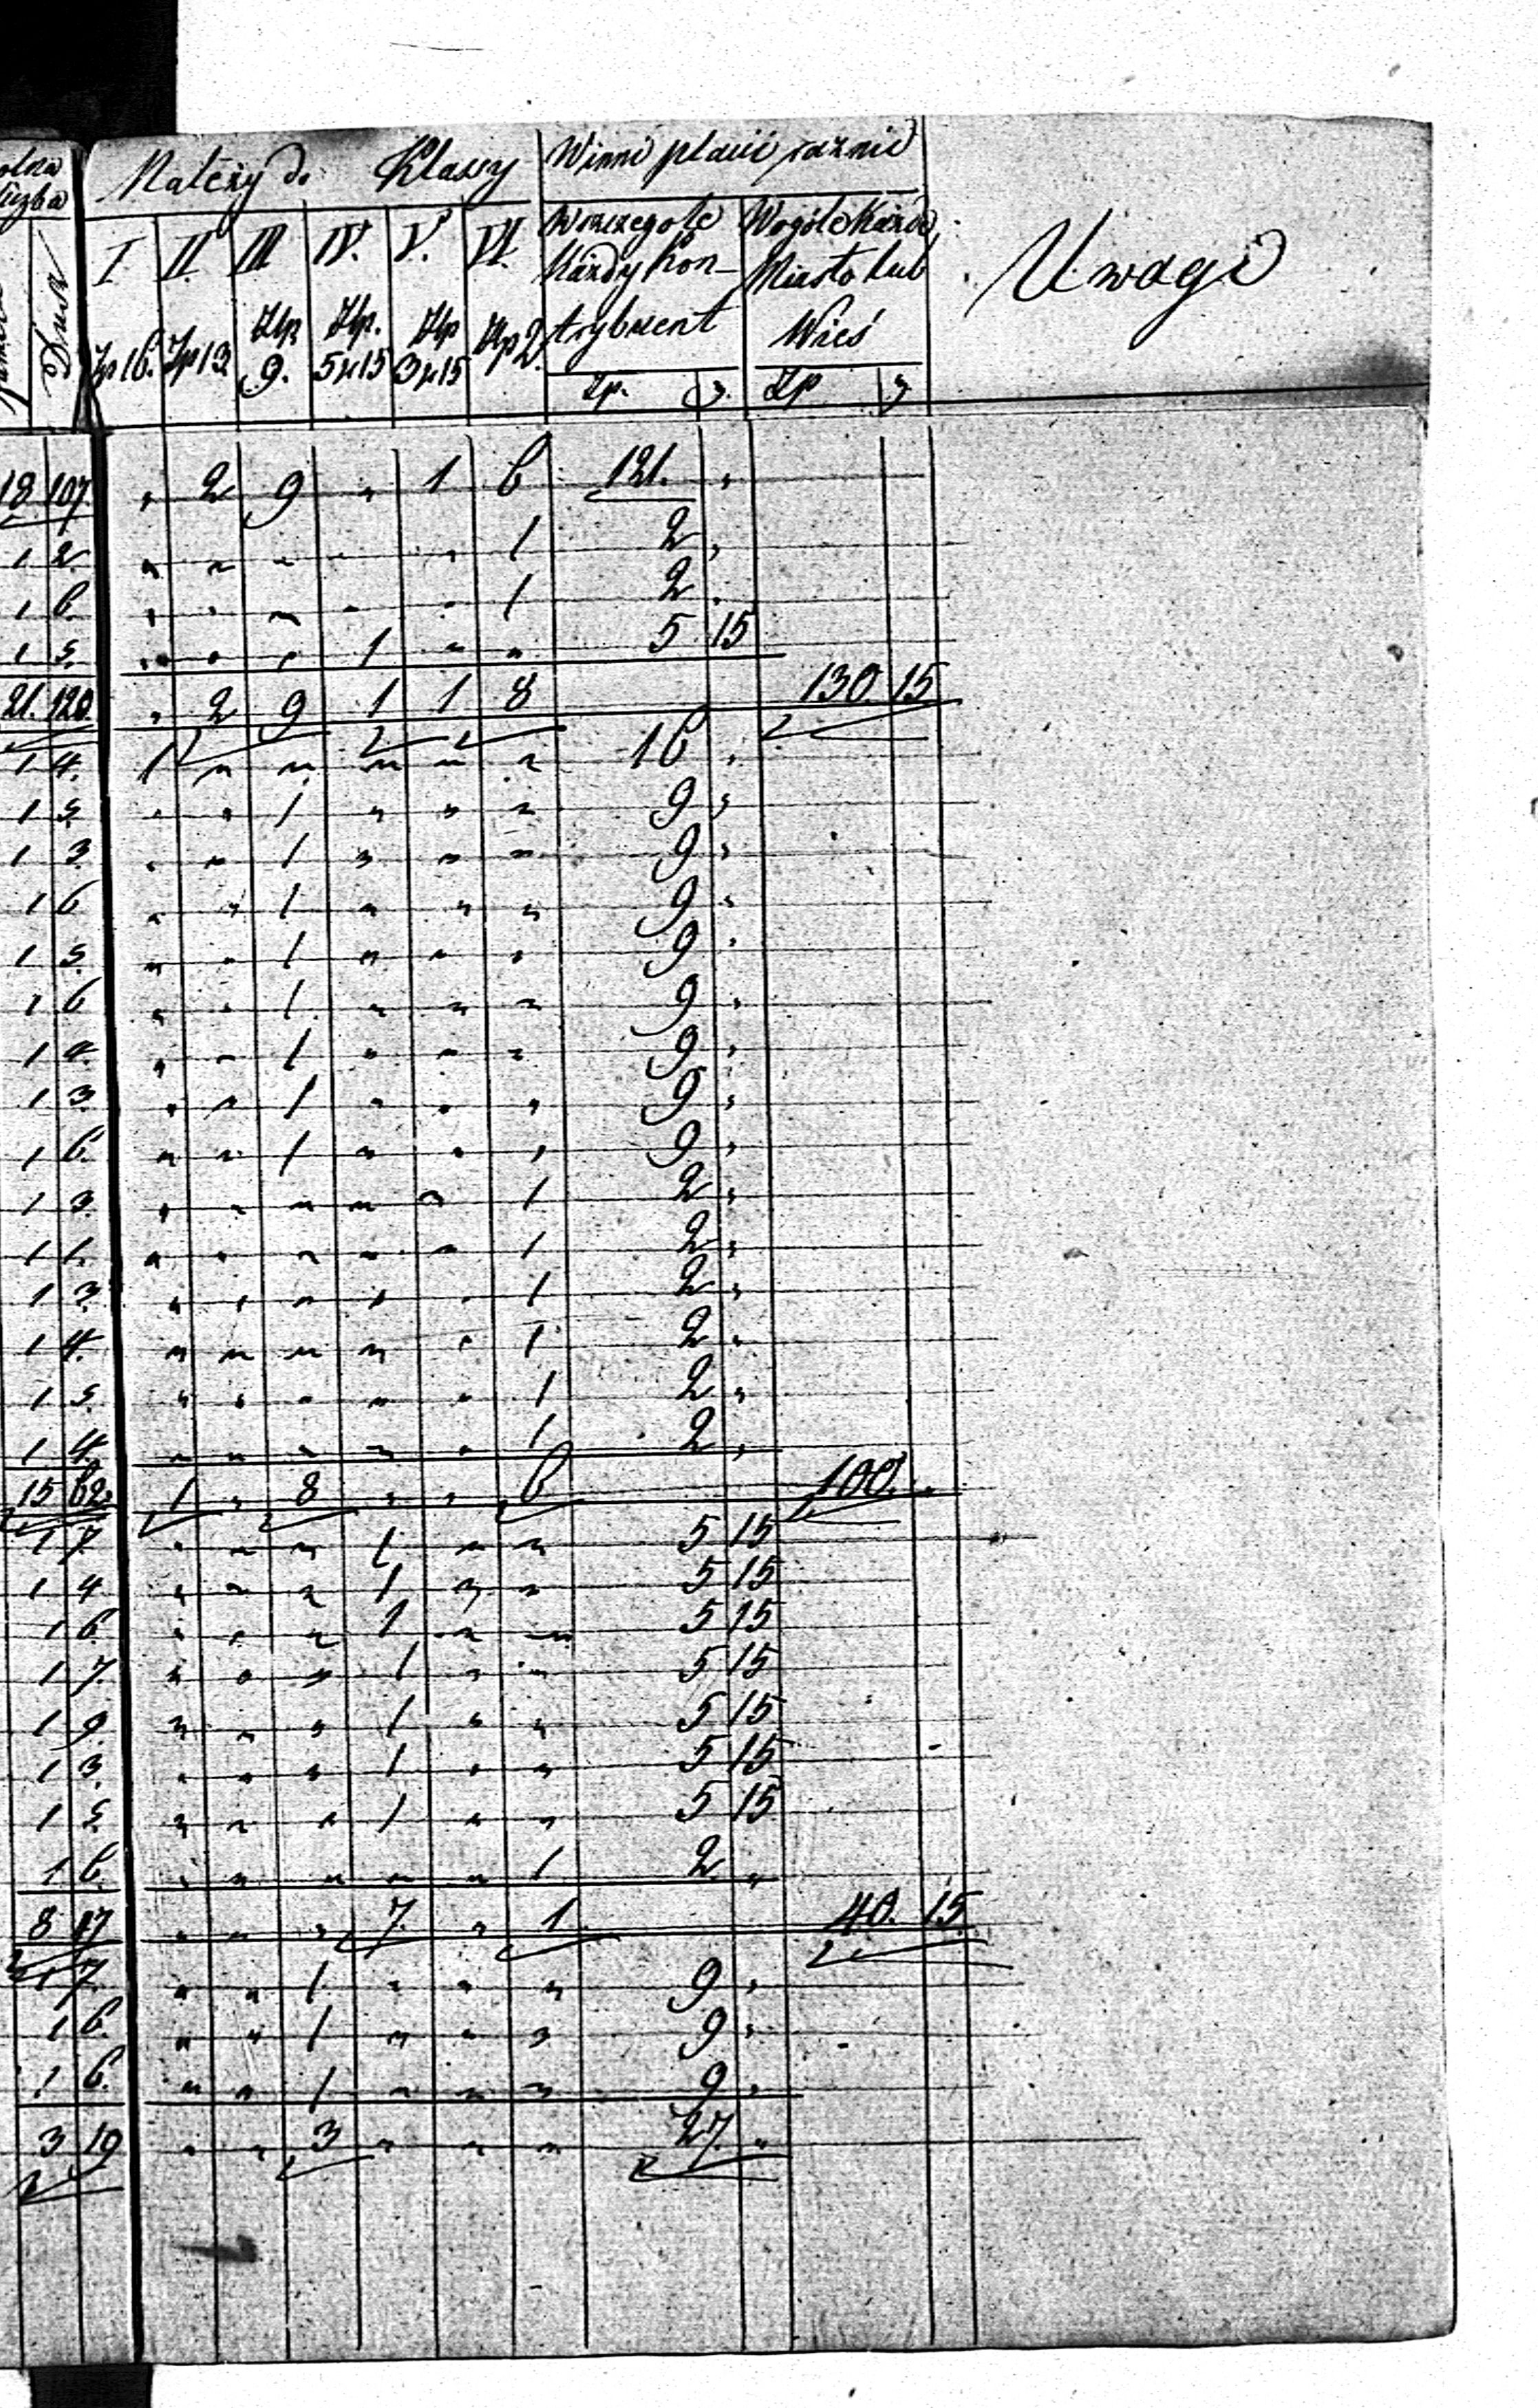 Należy do Klassy Winni płacić rażnie
I II III IV. V. VI. Wszczegole każdy kontrybuent Wogóle każde Miasto lub Wieś Uwagi
Dusz Zp 16. Zp 13 Złp 9. Złp. 5 g 15 Złp 3 g 15 Złp 2. Zp. g. Zp g
18 107. " 2 9 " 1 6 121. "
1 2. " " " " " 1 2 "
1 6. " " " " " 1 2 "
1 5. " " " 1 " " 5 15
21. 120. " 2 9 1 1 8 130. 15
1 4. 1 " " " " " 16 "
1 5. " " 1 " " " 9 "
1 3. " " 1 " " " 9 "
1 6 " " 1 " " " 9 "
1 5. " " 1 " " " 9 "
1 6 " " 1 " " " 9 "
1 4. " " 1 " " " 9 "
1 3. " " 1 " " " 9 "
1 6. " " 1 " " " 9 "
1 3. " " " " " 1 2 "
1 1. " " " " " 1 2 "
1 3. " " " " " 1 2 "
1 4. " " " " " 1 2 "
1 5. " " " " " 1 2 "
1 4. " " " " " 1 2 "
15 62. 1 " 8 " " 6 100. "
1 7. " " " 1 " " 5 15
1 4 " " " 1 " " 5 15
1 6. " " " 1 " " 5 15
1 7. " " " 1 " " 5 15
1 9. " " " 1 " " 5 15
1 3. " " " 1 " " 5 15
1 5. " " " 1 " " 5 15
1 6. " " " " " 1 2. "
8 47 " " " 7. " 1 40. 15
1 7. " " 1 " " " 9 "
1 6. " " 1 " " " 9 "
1 6. " " 1 " " " 9 "
3 19 " " 3 " " " 27. "